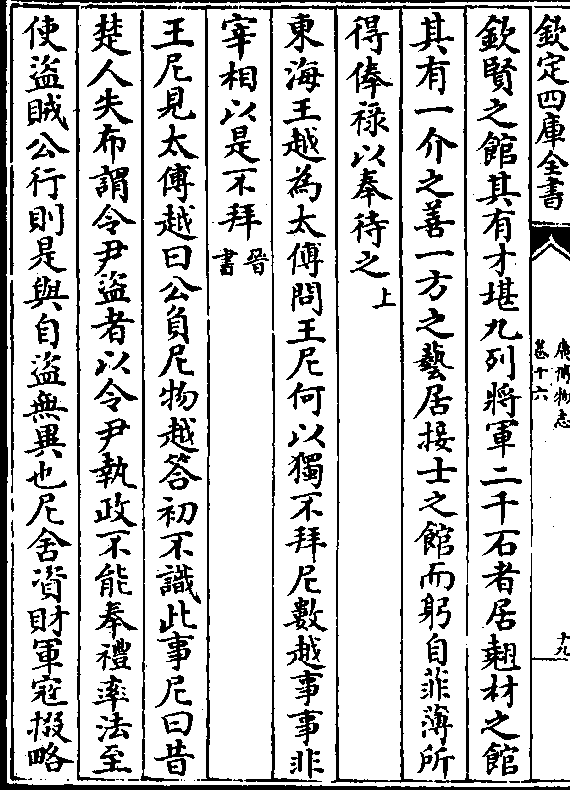 欽定四庫全書
廣博物志
卷十六
十九
欽賢之館其有才堪九列將軍二千石者居翹材之館
其有一介之善一方之藝居接士之館而躬自菲薄所
得俸祿以奉待之上
東海王越為太傅問王尼何以獨不拜尼數越事事非
宰相以是不拜晉書
王尼見太傅越曰公負尼物越答初不識此事尼曰昔
楚人失布謂令尹盜者以令尹執政不能奉禮率法至
使盜賊公行則是與自盜無異也尼舍資財軍寇掇略